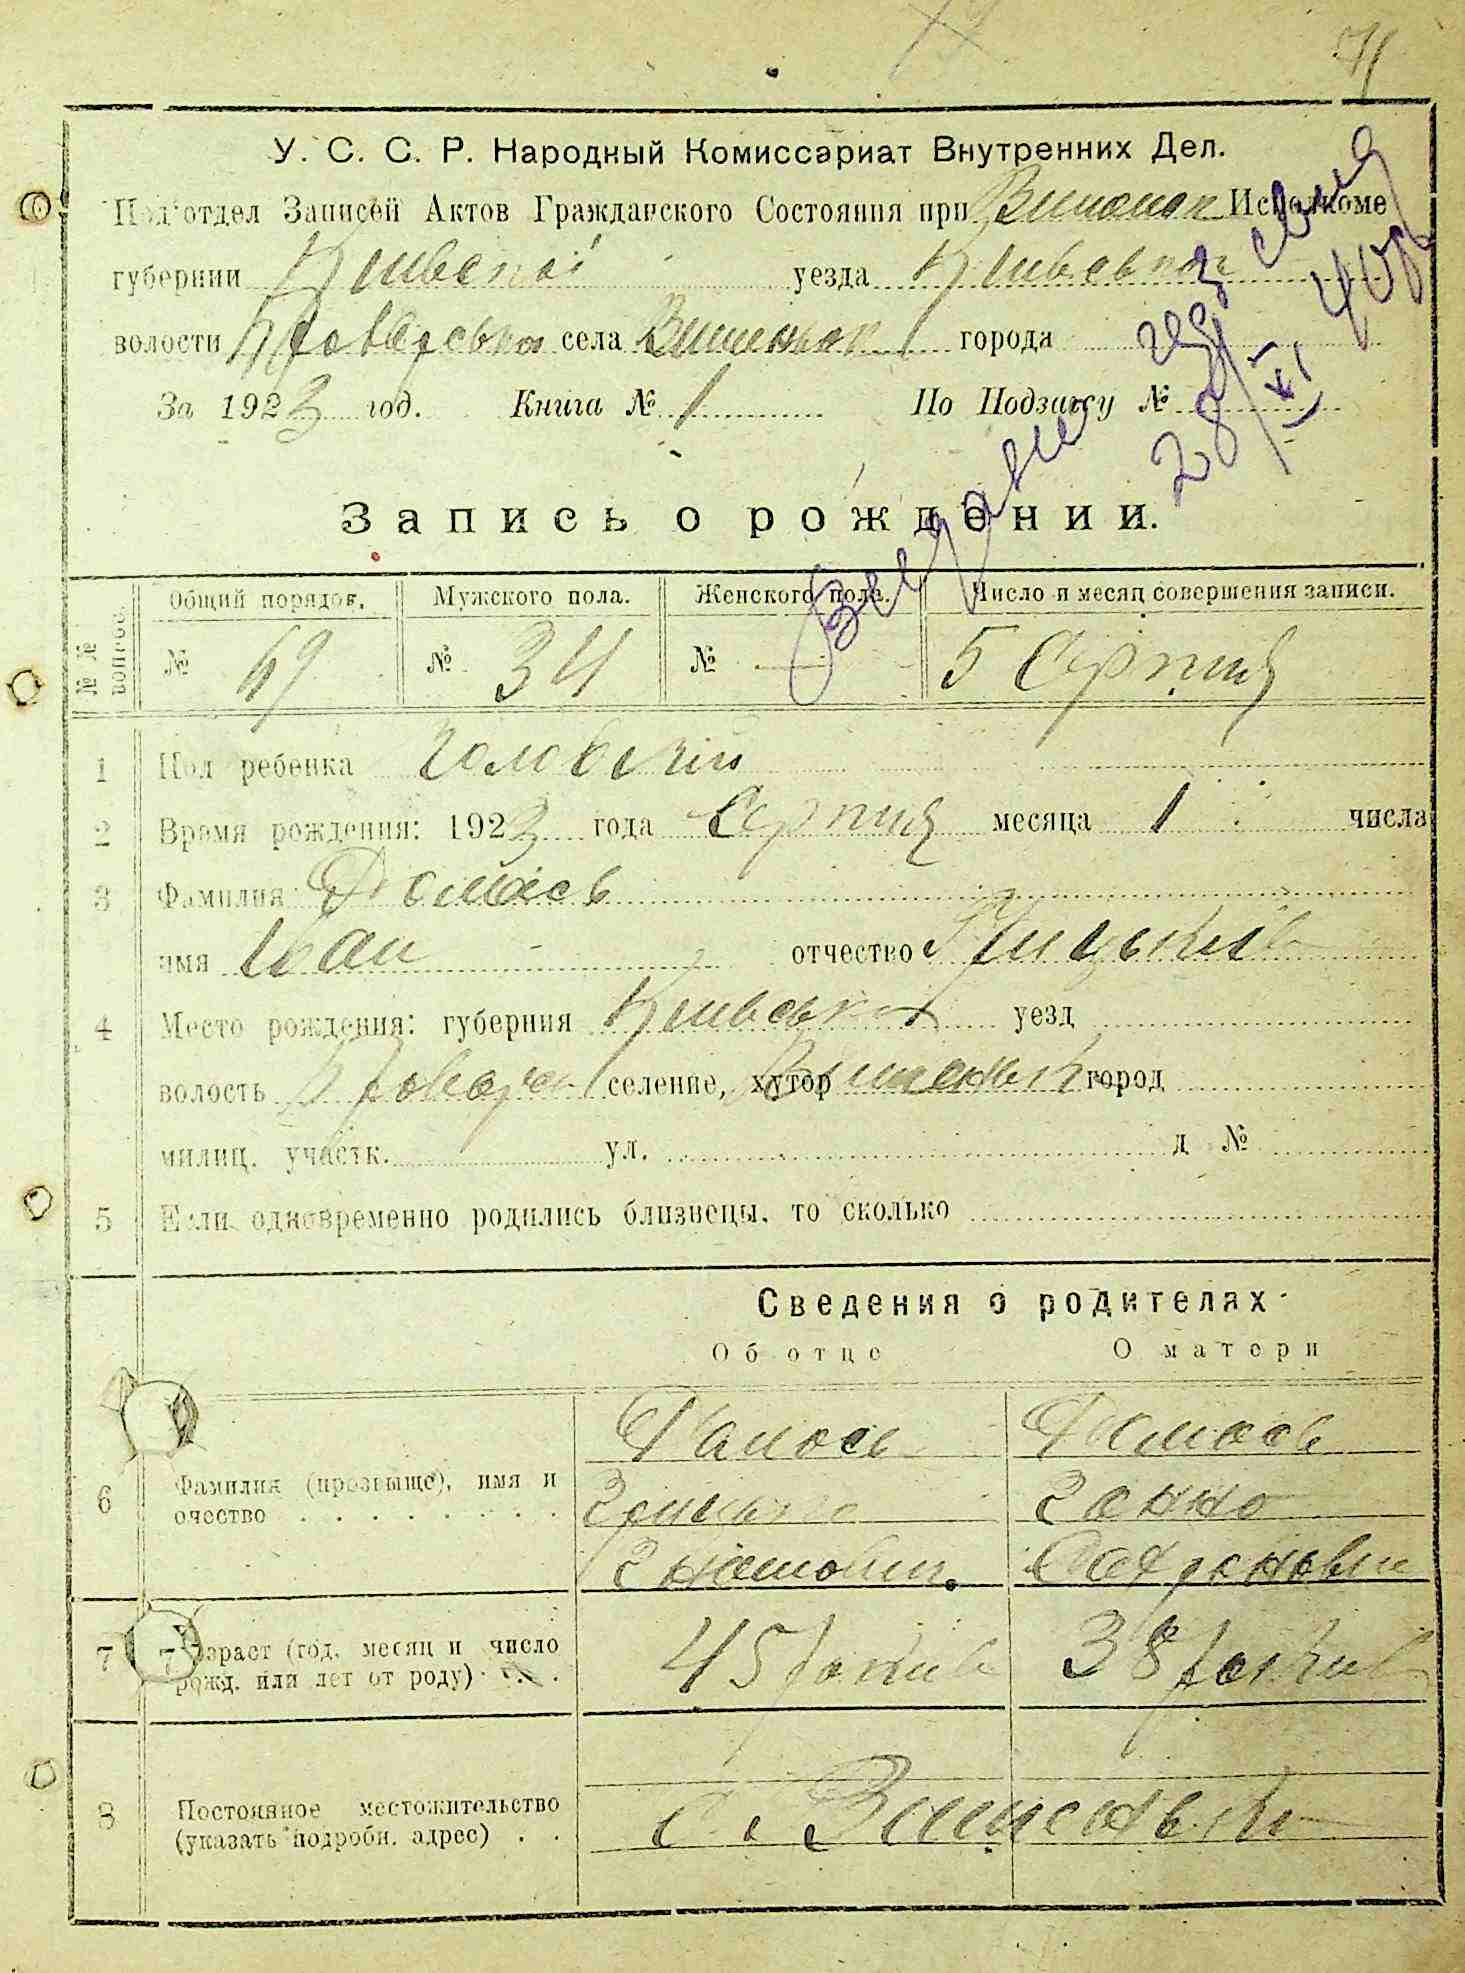 У. С. С. Р. Народный Комиссариат Внутренних Дел.
Подотдел Записей Актов Гражданского Состояния при Исполкоме
губернии Київської уезда Київської
волости Броварська села Вишеньки города
За 1923 год. Книга № 1 По Подзагсу №
28/XI 40р
Запись о рождении.
№№ вопрос. Общий порядок. Мужского пола. Женского пола. Число и месяц совершения записи.
№ 69 № 34 № — 5 Серпня
1 Пол ребенка Чоловічий
2 Время рождения: 1923 года Серпня месяца 1 числа
3 Фамилия
имя Іван отчество Грицьків
4 Место рождения: губерния Київська уезд
волость селение, хутор Вишеньки город
милиц. участк. ул. д №
5 Если одновременно родились близнецы, то сколько
Сведения о родителях
Об отце О матери
6 Фамилия (прозвыще), имя и очество
Ганна
7 Возраст (год, месяц и число рожд. или лет от роду) 45 років 38 років
8 Постоянное местожительство (указать подробн. адрес) с. Вишеньки